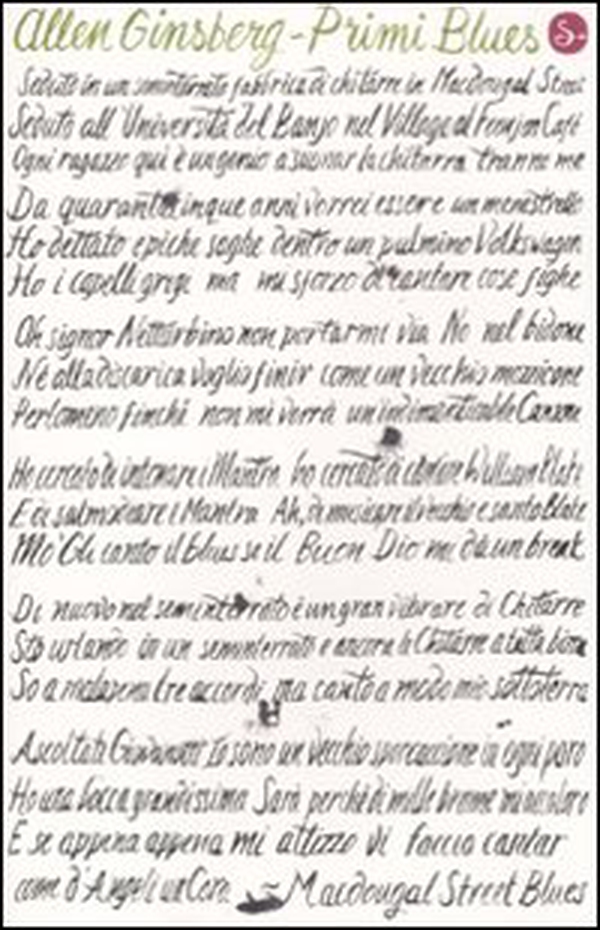 Allen Ginsberg - Primi Blues S.
Seduto in un seminterrato fabbrica di chitarre in Macdougal Street
Seduto all'Università del Banjo nel Village al Feenjon Café
Ogni ragazzo qui è un genio a suonar la chitarra tranne me
Da quarantacinque anni vorrei essere un menestrello
Ho dettato epiche saghe dentro un pulmino Volkswagen
Ho i capelli grigi ma mi sforzo di cantare cose fighe
Oh signor Netturbino non portarmi via No nel bidone
Né alla discarica voglio finir come un vecchio mozzicone
Perlomeno finché non mi verrà un'indimenticabile Canzone
Ho cercato di intonare i Mantra ho cercato di William Blake
E di salmodiare i Mantra Ah, di musicare il vecchio e santo Blake
Mo' Gli canto il blues se il Buon Dio mi dà un break
Di nuovo nel seminterrato è un gran vibrare di Chitarre
Sto urlando in un seminterrato e ancora le Chitarre a tutta birra
So a malapena tre accordi, ma canto a modo mio sottoterra
Ascoltate Giovanotti Io sono un vecchio sporcaccione in ogni poro
Ho una bocca grandissima Sarà perché di mille brame
E se appena appena mi attizzo vi faccio cantar
come d'Angeli un Coro. ~ Macdougal Street Blues